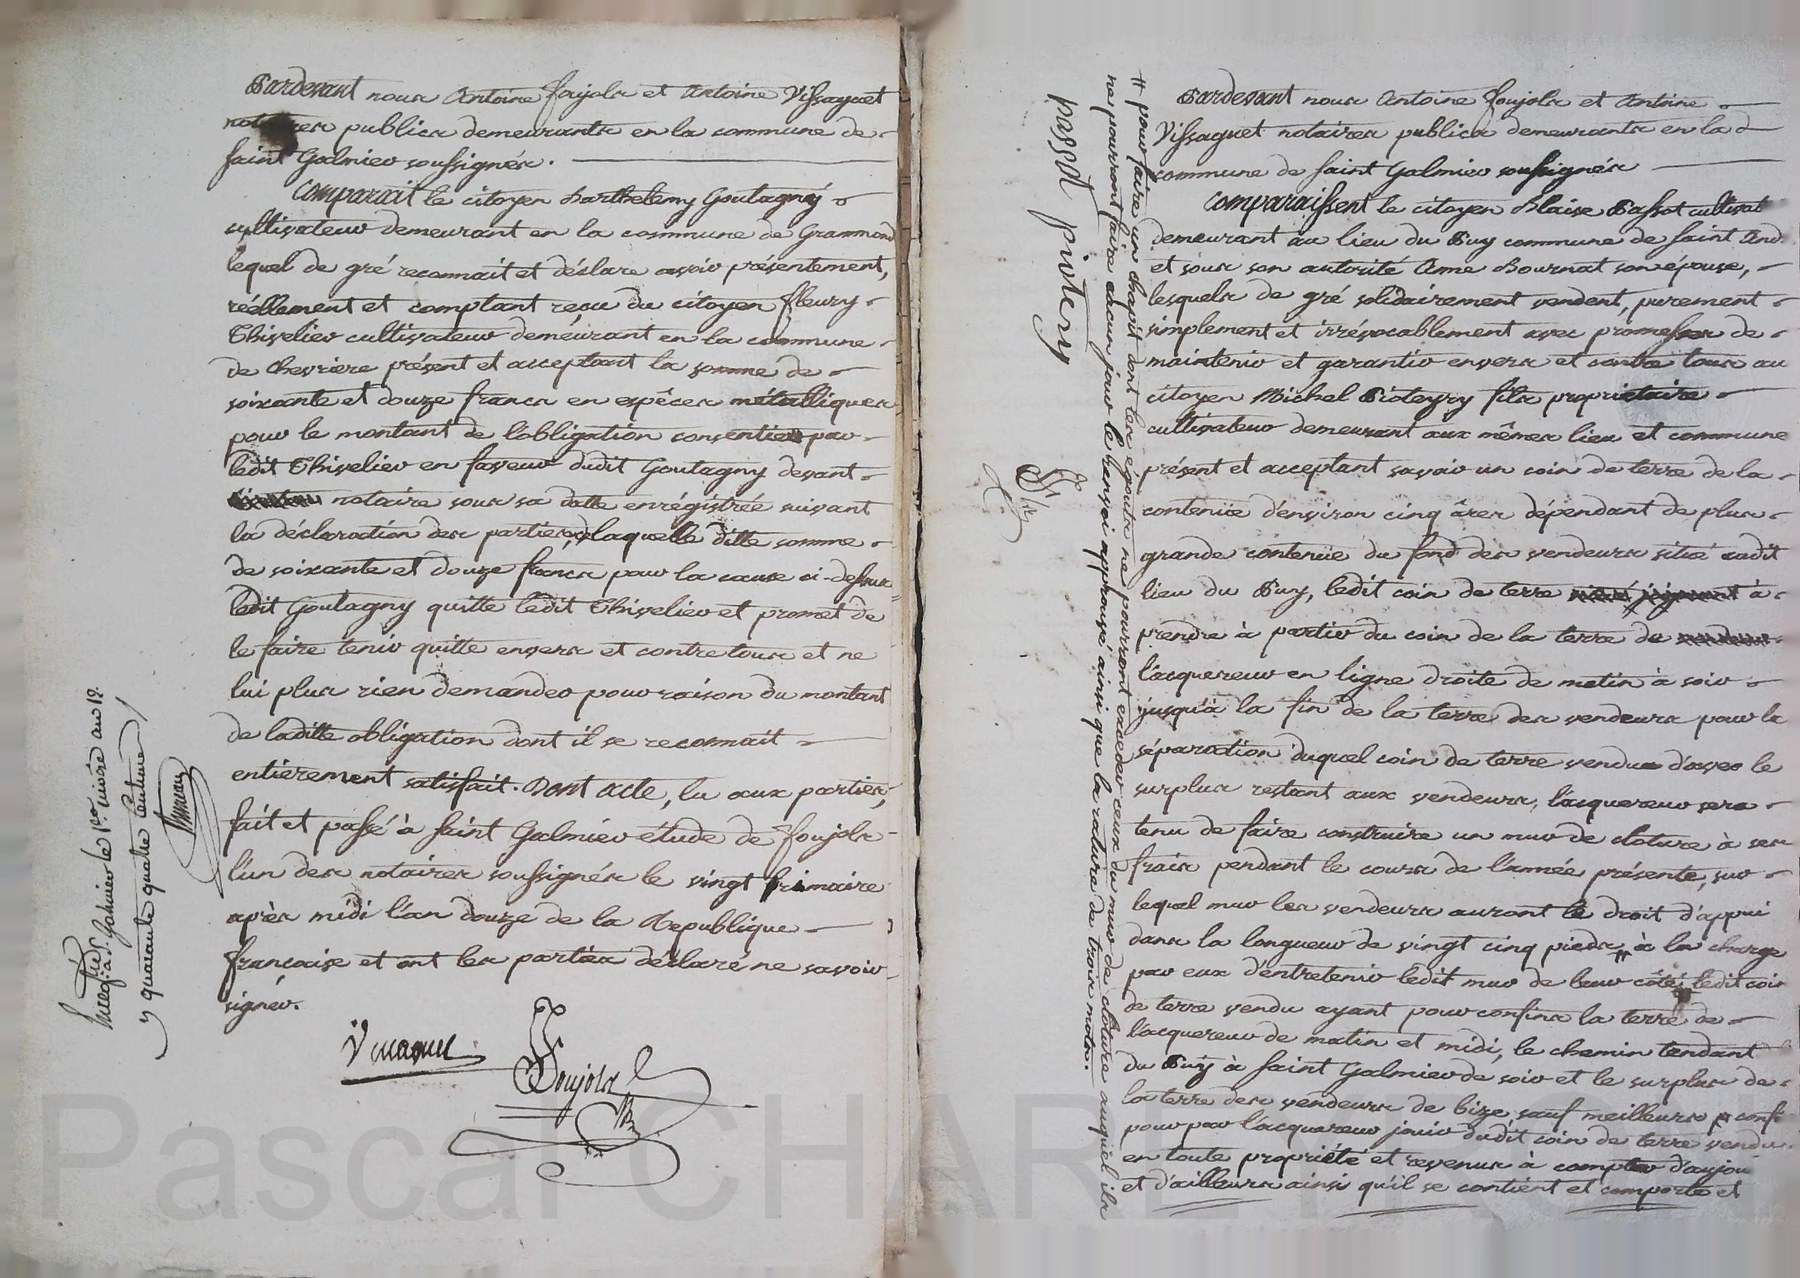 Pardevant nous Antoine Foujols et Antoine Vissaguet
notaires publics demeurants en la commune de
saint Galmier soussignés.
Comparait le citoyen Barthelemy Goutagny
cultivateur demeurant en la commune de Grammond
lequel de gré reconnait et déclare avoir présentement,
réellement et comptant reçu du citoyen fleury
Thivelier cultivateur demeurant en la commune
de Chevriere présent et acceptant la somme de
soixante et douze francs en espêces métalliques
pour le montant de l'obligation consentie par
ledit Thivelier en faveur dudit Goutagny devant
notaire sous sa datte enrégistrée suivant
la déclaration des parties, laquelle ditte somme
de soixante et douze francs pour la cause ci-dessus
ledit Goutagny quitte ledit Thivelier et promet de
le faire tenir quitte envers et contre tous et ne
lui plus rien demander pour raison du montant
de laditte obligation dont il se reconnait
entierement satisfait. Dont acte, lu aux parties,
fait et passé à saint Galmier étude de foujols
l'un des notaires soussignés le vingt frimaire
après midi l'an douze de la Republique
francaise et ont les parties déclaré ne savoir
signer.
Vissaguet
Foujols
Enregistré à St. Galmier le 1er nivose an 12
quarante quatre centime
Pardevant nous Antoine Foujols et Antoine
Vissaguet notaires publics demeurants en la
commune de saint Galmier soussignés
Comparaissent le citoyen Blaise Passot cultivat
demeurant au lieu du Puy commune de saint And
et sous son autorité Anne Bournat son épouse,
lesquels de gré solidairement vendent, purement
simplement et irrévocablement avec promesses de
maintenir et garantir envers et contre tous au
citoyen Michel Pioteyry fils proprietaire
cultivateur demeurant aux mêmes lieu et commune
présent et acceptant savoir un coin de terre de la
contenüe d'environ cinq âres dépendant de plus
grande contenüe du fond des vendeurs situé audit
lieu du Puy, ledit coin de terre à
prendre à partir du coin de la terre de
l'acquereur en ligne droite de matin à soir
jusqu'à la fin de la terre des vendeurs pour la
séparation duquel coin de terre vendu d'avec le
surplus restant aux vendeurs, l'acquereur sera
tenu de faire construire un mur de cloture à ses
frais pendant le cours de l'année présente, sur
lequel mur les vendeurs auront le droit d'appui
dans la longueur de vingt cinq pieds, # à la charge
par eux d'entretenir ledit mur de leur côté, ledit coin
de terre vendu ayant pour confins la terre de
l'acquereur de matin et midi, le chemin tendant
du Puy à saint Galmier de soir et le surplus de
la terre des vendeurs de bize sauf meilleurs confi
pour par l'acquereur jouir dudit coin de terre vendu
en toute proprieté et revenus à compter d'aujou
et d'ailleurs ainsi qu'il se contient et comporte et
# pour faire un chapit dont les egouts ne pourront exceder ceux du mur de cloture auquel ils
ne pourront faire aucun jour le renvoi approuvé ainsi que la rature de trois mots.
passot piotery
Pascal CHAREYRON